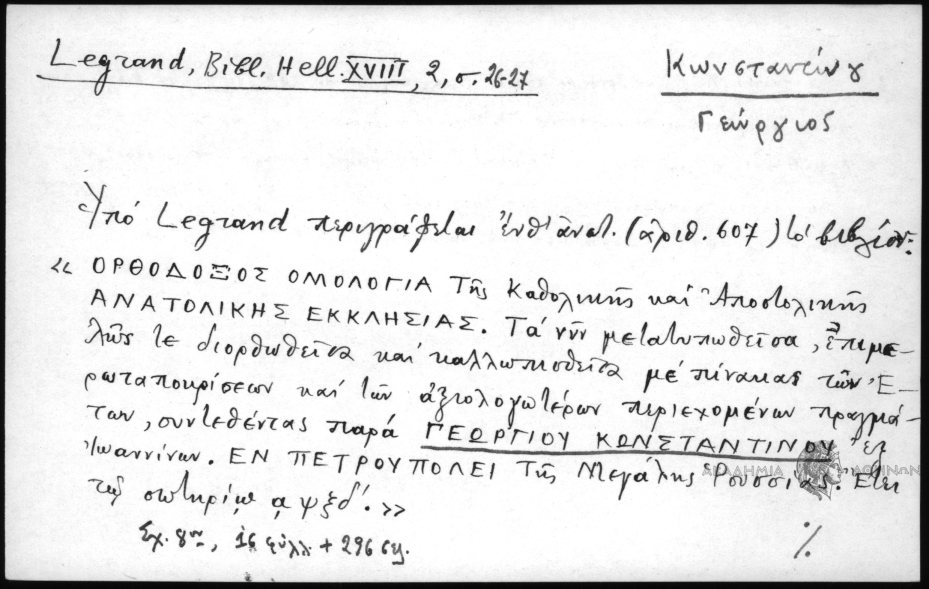 Legrand, Bibl. Hell. XVIII, 2, σ. 26-27
Κωνσταντίνου
Γεώργιος
Ὑπό Legrand περιγράφεται ἐνθ' ἀνωτ. (ἀριθ. 607) τό βιβλίον:
«ΟΡΘΟΔΟΞΟΣ ΟΜΟΛΟΓΙΑ τῆς Καθολικῆς καί Ἀποστολικῆς
ΑΝΑΤΟΛΙΚΗΣ ΕΚΚΛΗΣΙΑΣ. Τά νῦν μετατυπωθεῖσα, ἐπιμε-
λῶς τε διορθωθεῖσα καί καλλωπισθεῖσα μέ πίνακας τῶν Ἐ-
ρωταποκρίσεων καί τῶν ἀξιολογωτέρων περιεχομένων πραγμά-
των, συντεθέντας παρά ΓΕΩΡΓΙΟΥ ΚΩΝΣΤΑΝΤΙΝΟΥ ἐξ
Ἰωαννίνων. ΕΝ ΠΕΤΡΟΥΠΟΛΕΙ τῆς Μεγάλης Ρουσσίας. Ἔτει
τῷ σωτηρίῳ αψξδ΄.»
Σχ. 8ον, 16 φύλλ + 296 σελ.
%
ΑΚΑΔΗΜΙΑ ΑΘΗΝΩΝ